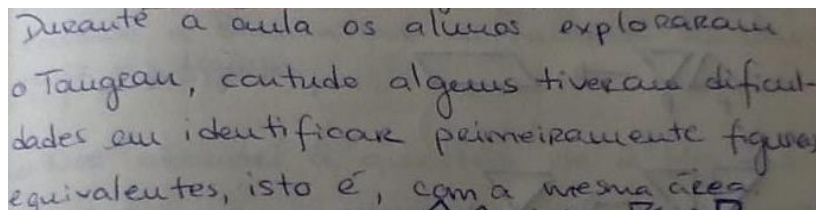 Durante a aula os alunos exploraram
o Tangran, contudo alguns tiveram dificul-
dades em identificar primeiramente figuras
equivalentes, isto é, com a mesma área.